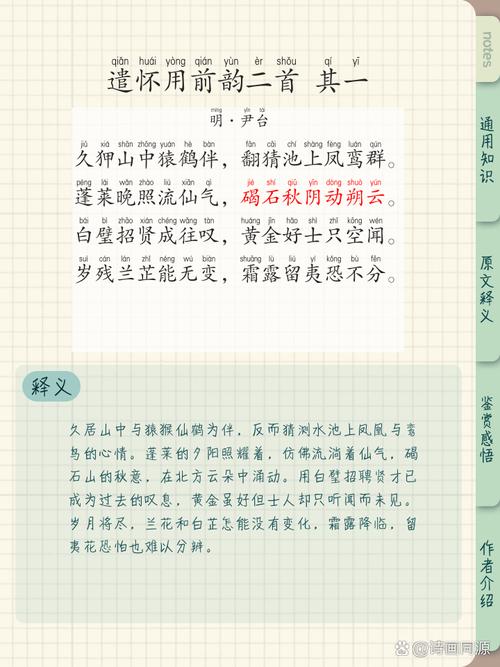 notes
qiǎn huái yòng qián yùn èr shǒu qí yī
遣怀用前韵二首 其一
míng yǐn tái
明·尹台
jiǔ xiá shān zhōng yuán hè bàn fān cāi chí shàng fèng luán qún
久狎山中猿鹤伴，翻猜池上凤鸾群。
péng lái wǎn zhào liú xiān qì jié shí qiū yīn dòng shuò yún
蓬莱晚照流仙气，碣石秋阴动朔云。
bái bì zhāo xián chéng wǎng tàn huáng jīn hǎo shì zhǐ kōng wén
白璧招贤成往叹，黄金好士只空闻。
suì cán lán zhǐ néng wú biàn shuāng lù liú yí kǒng bù fēn
岁残兰芷能无变，霜露留夷恐不分。
释义
久居山中与猿猴仙鹤为伴，反而猜测水池上凤凰与鸾
鸟的心情。蓬莱的夕阳照耀着，仿佛流淌着仙气，碣
石山的秋意，在北方云朵中涌动。用白璧招聘贤才已
成为过去的叹息，黄金虽好但士人却只听闻而未见。
岁月将尽，兰花和白芷怎能没有变化，霜露降临，留
夷花恐怕也难以分辨。
通用知识
原文释义
鉴赏感悟
作者介绍
@诗画同源